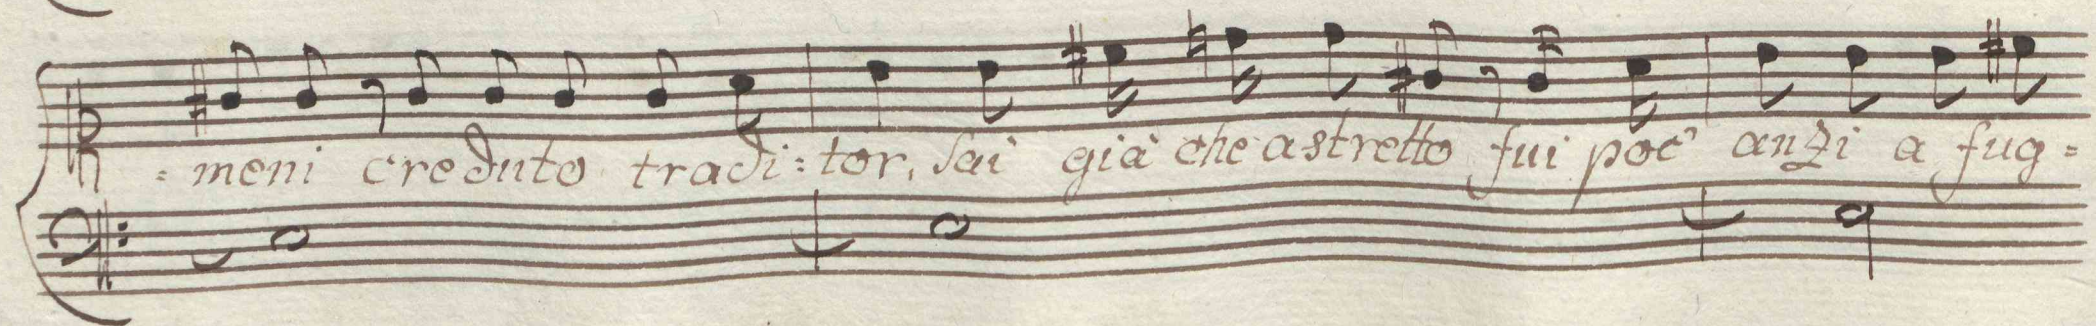 =meni creduto tradi:tor, sai già che astretto fui poc' anzi a fug=